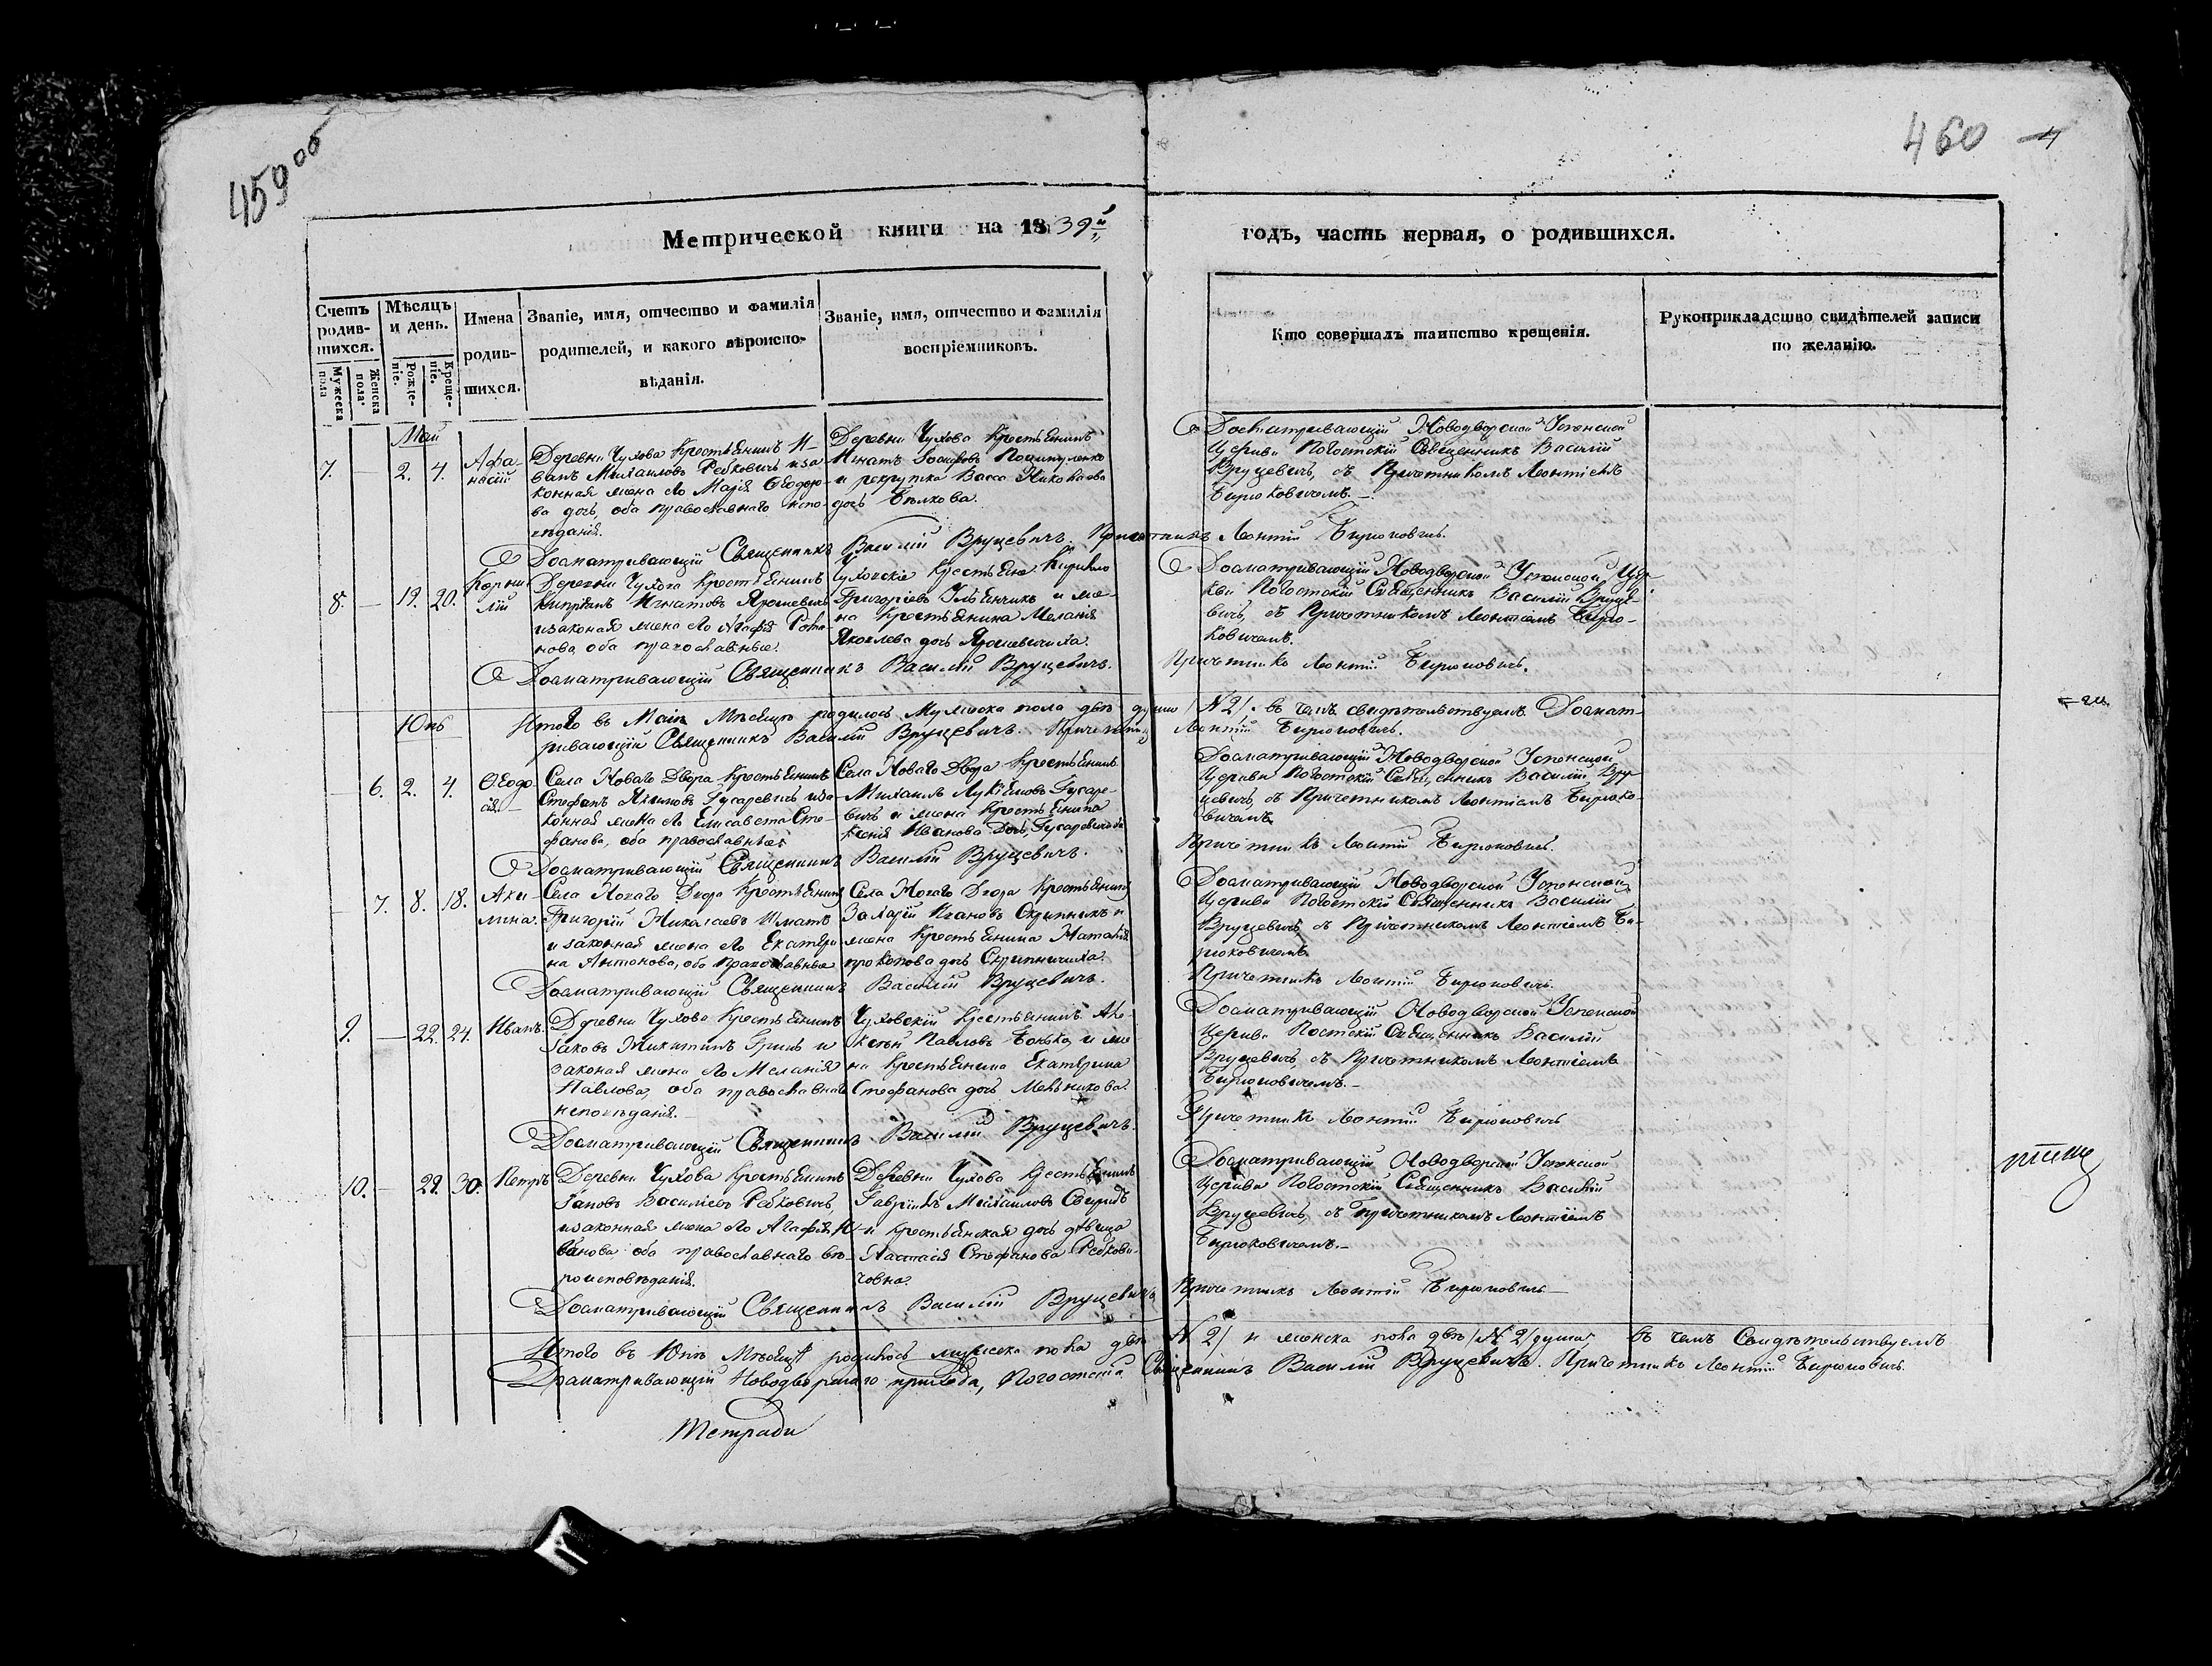 459 об
460
4
Метрической книги на 1839й
годъ, часть первая, о родившихся.
Счетъ родив-шихся.
Мужеска пола
Женска пола.
Мѣсяцъ и день.
Рожде-ніе.
Креще-ніе.
Имена родив-шихся.
Званіе, имя, отчество и фамилія родителей, и какого вѣроиспо-вѣданія.
Званіе, имя, отчество и фамилія воспріемниковъ.
Кто совершалъ таинство крещенія.
Рукоприкладство свидѣтелей записи по желанію.
Май
7. — 2. 4.
Афа-
насій
Деревни Чухова Крестьянинъ И-
ванъ Михаиловъ Редковичъ и за
конная жена его Марія Ѳеодоро
ва дочь, оба православнаго испо-
вѣданія.
Деревни Чухова Крестьянинъ
Игнатъ
и рекрутка Васса Николаева
дочь Бѣлкова.
Досматривающій Новодворской Успенской
Церкви Погостскій Священникъ Василій
Вруцевичъ, съ Причетникомъ Леонтіемъ
Бирюковичемъ.—
Досматривающій Священникъ Василій Вруцевичъ. Причетникъ Леонтій Бирюковичъ.
8. — 19. 20.
Корни
лій
Деревни Чухова Крестьянинъ
Кипріянъ Игнатовъ Ярошевичъ
и законая жена его Агафія Рома-
нова, оба православные.
Чуховскіе Крестьяне Кирило
Григоріевъ Ульянчикъ и же-
на Крестьянина Меланія
Яковлева дочь Ярошевичиха.
Досматривающій Новодворской Успенской Цер-
кви Погостскій Священникъ Василій Вруце-
вичъ, съ Причетникомъ Леонтіемъ Бирю-
ковичемъ.
Досматривающій Священникъ Василій Вруцевичъ.
Причетникъ Леонтій Бирюковичъ.
Итого въ Маіи Мѣсяцѣ родилось Мужеска пола двѣ души /N 2/. въ чемъ свидѣтельствуемъ Досмат-
ривающій Священникъ Василій Вруцевичъ. Причетникъ Леонтій Бирюковичъ.
Юнь
— 6. 2. 4.
Ѳеодо-
сія.—
Села Новаго Двора Крестьянинъ
Стефанъ Якимовъ Гусаревичъ и за-
конная жена его Елисавета Сте-
фанова, оба православные
Села Новаго Двора Крестьянинъ
Михаилъ Лукіяновъ Гусаре-
вичъ и жена Крестьянина
Ксенія Иванова дочь, Гусаревичиха
Досматривающій Новодворской Успенской
Церкви Погостскій Священникъ Василій Вру
цевичъ, съ Причетникомъ Леонтіемъ Бирюко-
вичемъ.
Досматривающій Священникъ Василій Вруцевичъ.
Причетникъ Леонтій Бирюковичъ.
— 7. 8. 18.
Аки-
лина.
Села Новаго Двора Крестьянинъ
Григорій Николаевъ Игнатъ
и законная жена его Екатери
на Антонова, оба православные
Села Новаго Двора Крестьянинъ
Захарій Ивановъ Скрипникъ и
жена Крестьянина Наталія
прокопова дочь Скрипничиха.
Досматривающій Новодворской Успенской
Церкви Погостскій Священникъ Василій
Вруцевичъ, съ Причетникомъ Леонтіемъ Би-
рюковичемъ.
Досматривающій Священникъ Василій Вруцевичъ.
Причетникъ Леонтій Бирюковичъ.
9. — 22. 24.
Иванъ.
Деревни Чухова Крестьянинъ
Іаковъ Никитинъ Гринь и
законая жена его Меланія
Павлова, оба православнаго
исповѣданія.—
Чуховскій Крестьянинъ Але-
ксѣй Павловъ Бонька, и же-
на Крестьянина Екатерина
Стефанова дочь Мельникова.
Досматривающій Новодворской Успенской
Церкви Постскій Священникъ Василій
Вруцевичъ, съ Причетникомъ Леонтіемъ
Бирюковичемъ.—
Досматривающій Священникъ Василій Вруцевичъ.
Причетникъ Леонтій Бирюковичъ
10. — 29. 30.
Петръ
Деревни Чухова Крестьянинъ
Іаковъ Василіевъ Редковичъ,
и законная жена его Агафія И-
ванова оба православнаго вѣ-
роисповѣданія.
Деревни Чухова Крестьянинъ
Гавріилъ Михаиловъ Свиридъ
и крестьянская дочь дѣвица
Настасія Стефанова Редкови-
човна.
Досматривающій Новодворской Успенской
Церкви Погостскій Священникъ Василій
Вруцевичъ, съ Причетникомъ Леонтіемъ
Бирюковичемъ.—
Досматривающій Священникъ Василій Вруцевичъ
Причетникъ Леонтій Бирюковичъ—
Итого въ Юнѣ Мѣсяцѣ родилось мужеска пола двѣ /N 2/ и женска пола двѣ /N 2/ души въ чемъ Свидѣтельствуемъ
Досматривающій Новодворскаго прихода, Погостскій Священникъ Василій Вруцевичъ. Причетникъ Леонтій Бирюковичъ.
Тетради